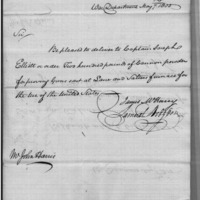 War Department May 1800
Sir,
Be pleased to deliver to Captain Joseph
Elliott or order Two hundred pounds of Cannon powder
for proving Guns cast at Lane and Salters furnace for
the use of the United States.
James McHenry
Samuel Hodgdon
Mr John Harris